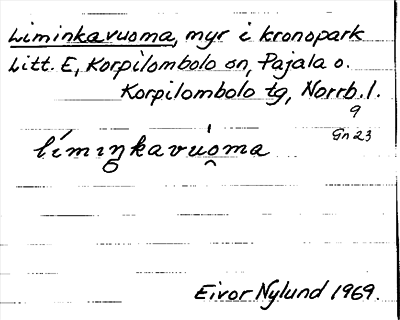 Liminkavuoma, myr i kronopark
Litt. E, Korpilombolo sn, Pajala o.
Korpilombolo tg, Norrb. l.
9
Gn 23
límiŋkavu̯óma
Eivor Nylund 1969.